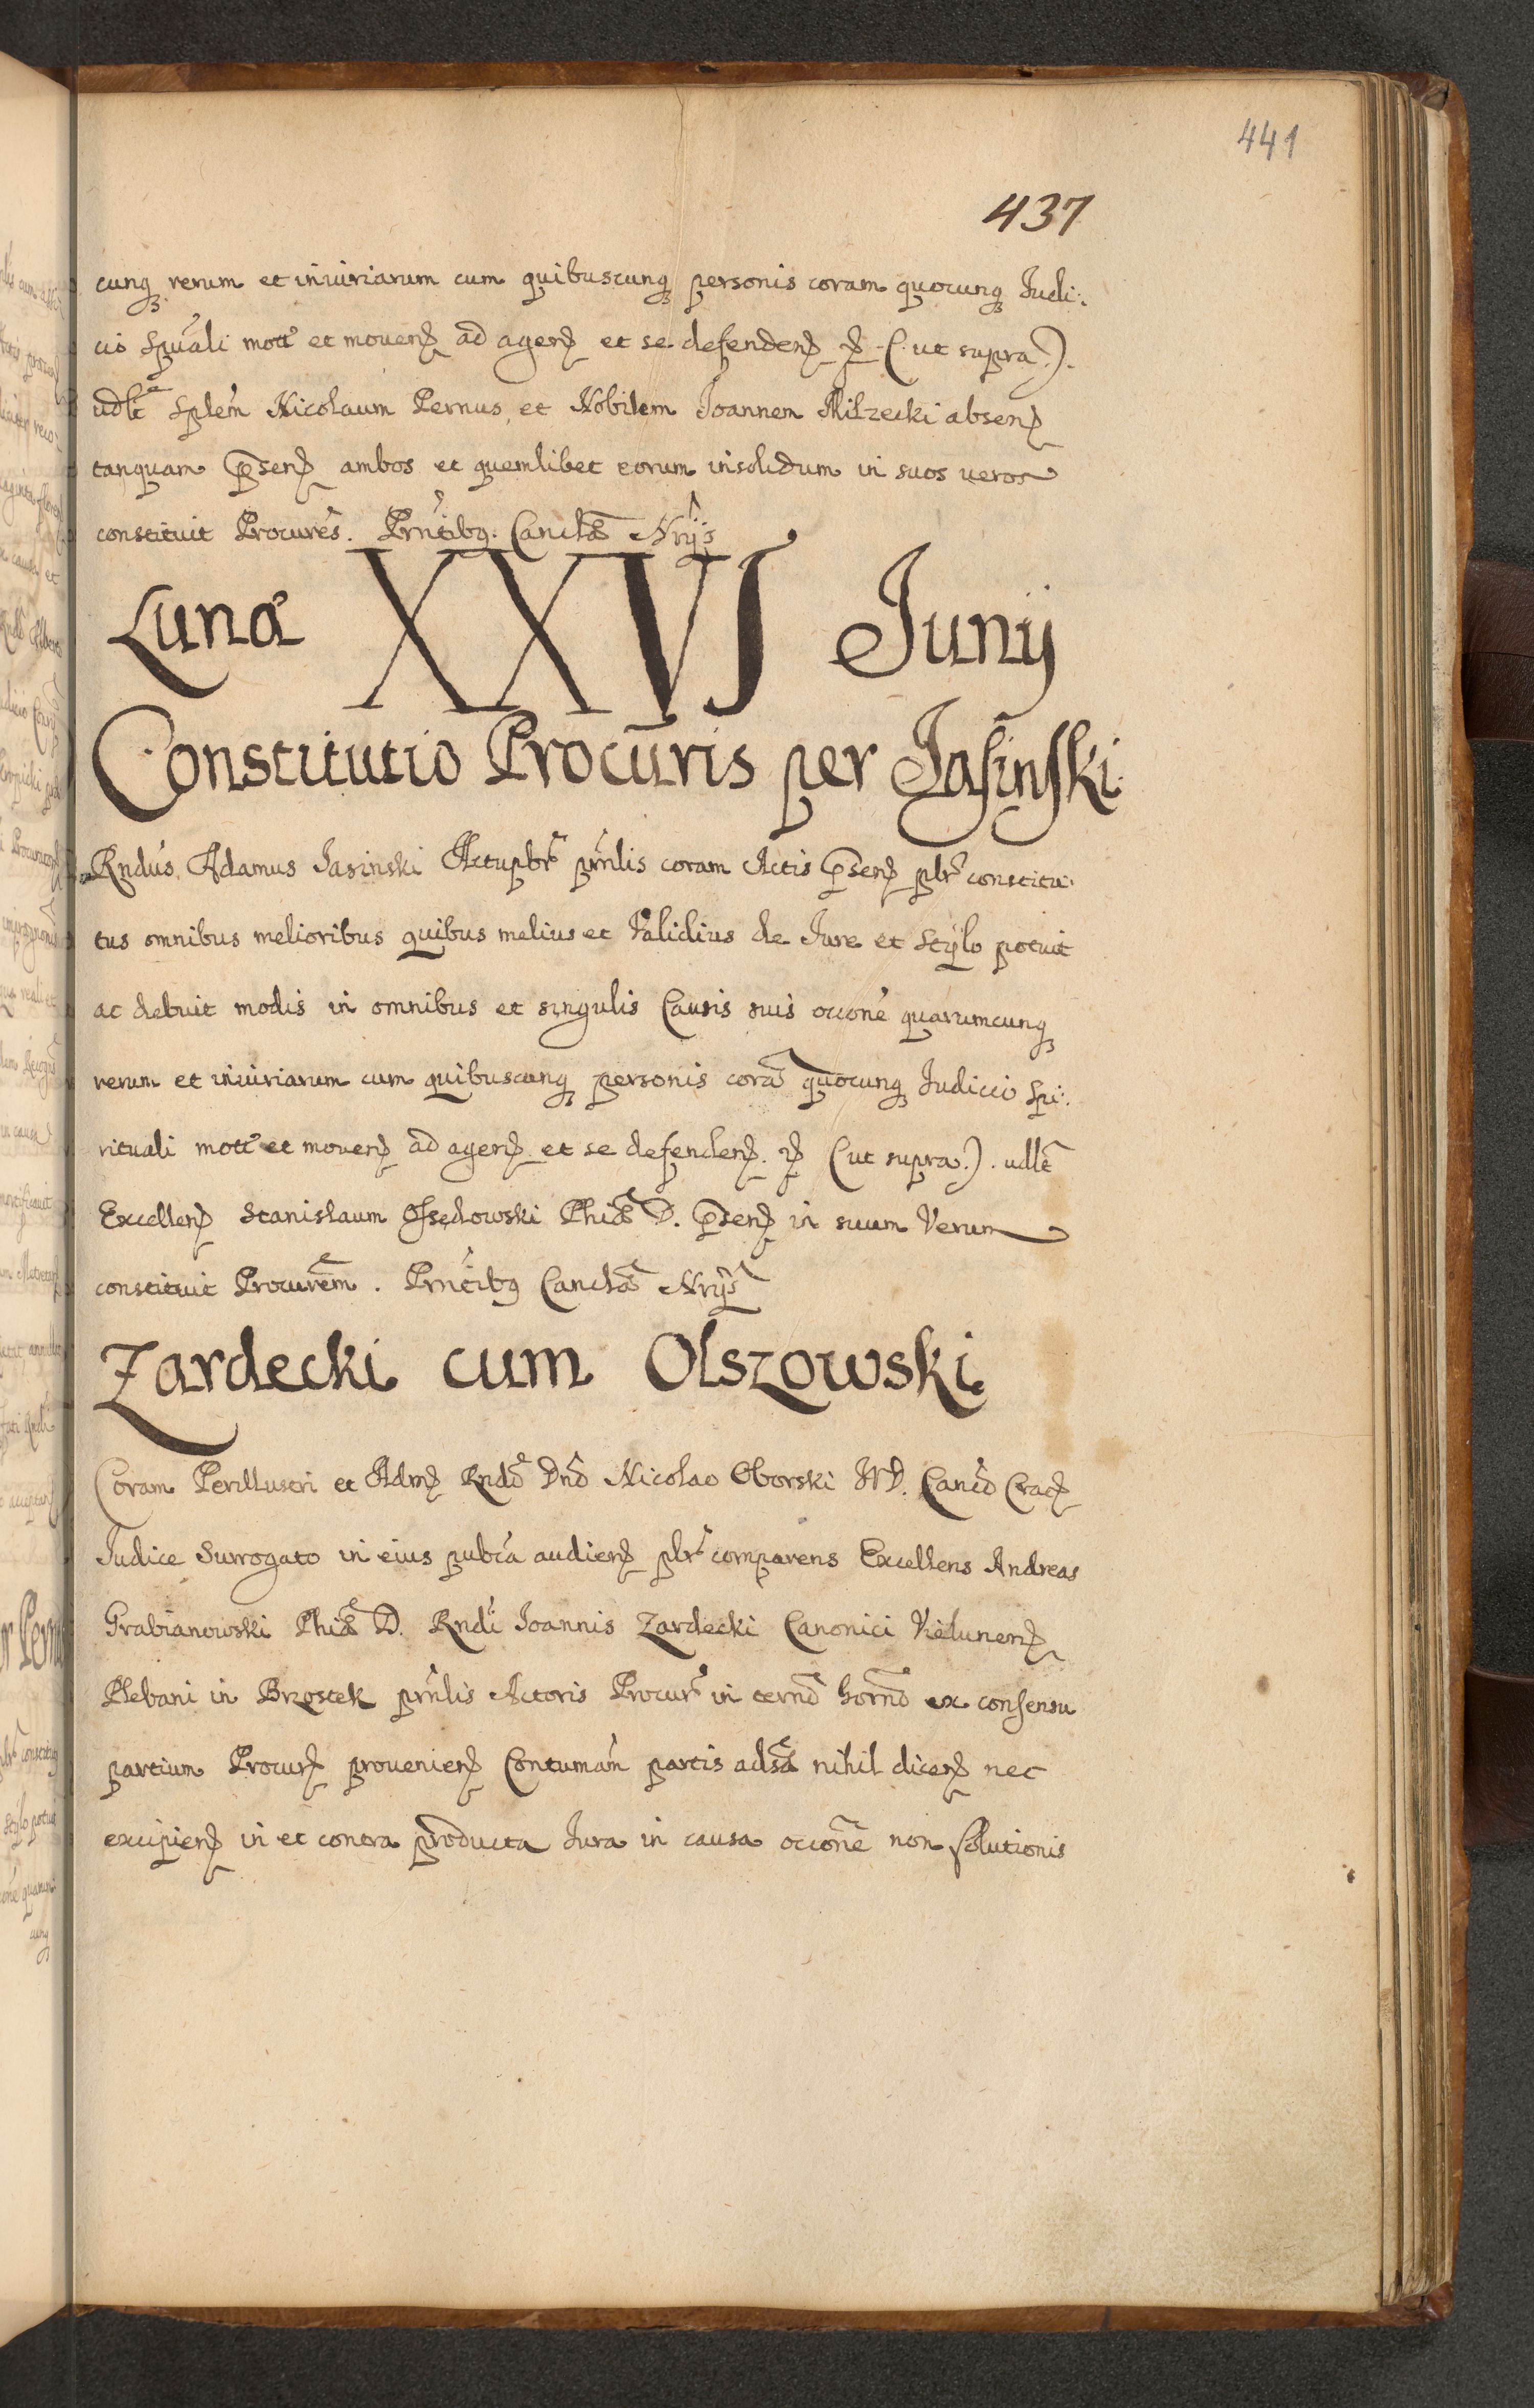 441
437
cunq rerum et iniuriarum cum quibuscunq personis coram quocunq Iudi:
cio Spũali mott et mouen ad agen et se defenden (ut supra).
udlt Splem Nicolaum Pernus et Nobilem Joannem Milzecki absen
tanquam psen ambos et quemlibet eorum insolidum in suos ueros
constituit Procures. Prntibq. Canclæ Nrijs
Lunæ XXVJ Junij
Constitutio Procuris per Jasinski.
Rndus Adamus Iasinski Actuplr prnlis coram Actis psen plr constitu:
tus omnibus melioribus quibus melius et Validius de Iure et Stylo potuit
ac debuit modis in omnibus et singulis Causis suis occone quarumcunq
rerum et iniuriarum cum quibuscunq personis corã quocunq Iudicio Spi:
rituali mott et mouen ad agen et se defenden (ut supra). udlt
Excellen Stanislaum Ossędowski Phiæ D. psen in suum Verum
constituit Procurem. Prntibq Canclæ Nrijs
Zardecki cum Olszowski
Coram Perillustri et Adm Rndo Dno Nicolao Oborski IVD. Canco Crac
Iudice Surrogato in eius pubca audien plr comparens Excellens Andreas
Grabianowski Phiæ D. Rndi Joannis Zardecki Canonici Vielunen
Plebani in Brzostek prnlis Actoris Procur in termo horno ex consensu
partium Procur prouenien Contumam partis adsæ nihil dicen nec
excipien in et contra producta Iura in causa occone non solutionis